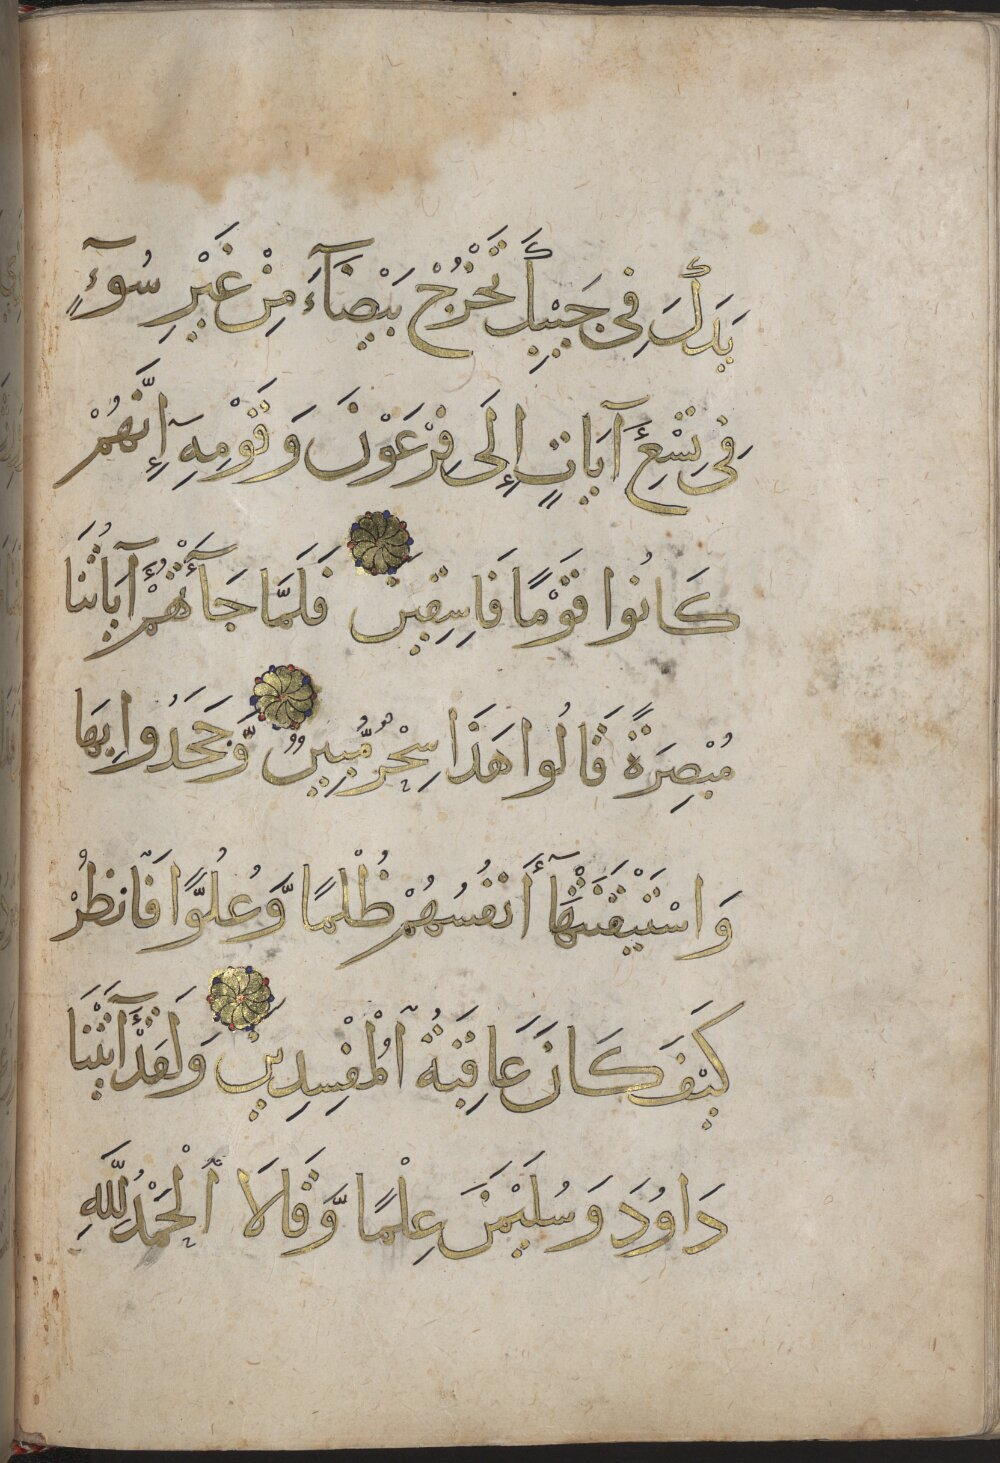 يَدَكَ فِي جَيْبِكَ تَخْرُجْ بَيْضَآءَ مِنْ غَيْرِ سُوٓءٍ
فِي تِسْعِ آيَاتٍ إِلَى فِرْعَوْنَ وَقَوْمِهِٓ إِنَّهُمْ
كَانُوا قَوْمًا فَاسِقِينَ فَلَمَّا جَآءَتْهُمْ آيَاتُنَا
مُبْصِرَةً قَالُوا هَذَا سِحْرٌ مُّبِينٌ وَّجَحَدُوا بِهَا
وَاسْتَيْقَنَتْهَآ أَنفُسُهُمْ ظُلْمًا وَّعُلُوًّا فَانظُرْ
كَيْفَ كَانَ عَاقِبَةُ الْمُفْسِدِينَ وَلَقَدْ آتَيْنَا
دَاوُدَ وَسُلَيْمَنَ عِلْمًا وَّقَالَا الْحَمْدُ لِلَّهِ